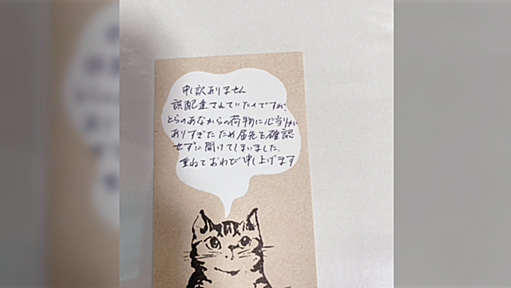 申し訳ありません
誤配達されていたのですが、
とらのあなからの荷物に心当りが
ありすぎたため宛先を確認
せずに開けてしまいました。
重ねておわび申し上げます